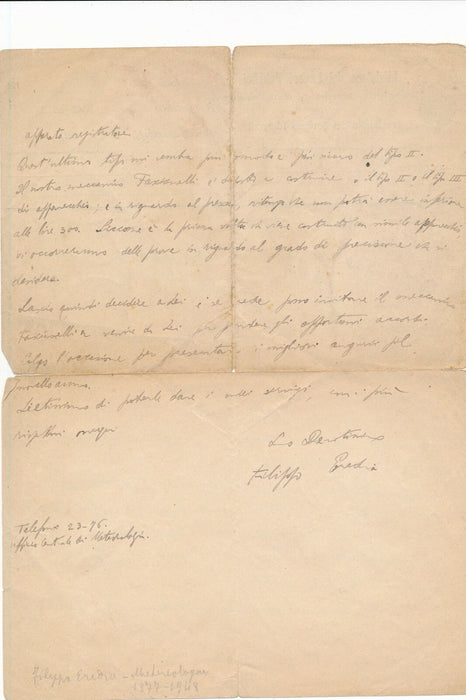 apparato registratore.
Quest'ultimo tipo mi sembra più comodo e più sicuro del tipo II.
Il nostro meccanico Fascianelli è disposto a costruire o il tipo II o il tipo III
di apparecchio; e in riguardo al prezzo, ritengo che non potrà essere inferiore
alle lire 300. Siccome è la prima volta che viene costruito un simile apparecchio,
vi occorreranno delle prove in riguardo al grado di precisione che si
desidera.
Lascio quindi decidere a Lei e se crede posso invitare il meccanico
a venire da Lei per prendere gli opportuni accordi.
Colgo l'occasione per presentarle i migliori auguri pel
Lietissimo di poterle dare i miei servigi, con i più
rispettosi ossequi
Suo Devotissimo
Filippo Eredia
Telefono 23-96.
Ufficio Centrale di Meteorologia.
Filippo Eredia - Metereologo
1877-1948